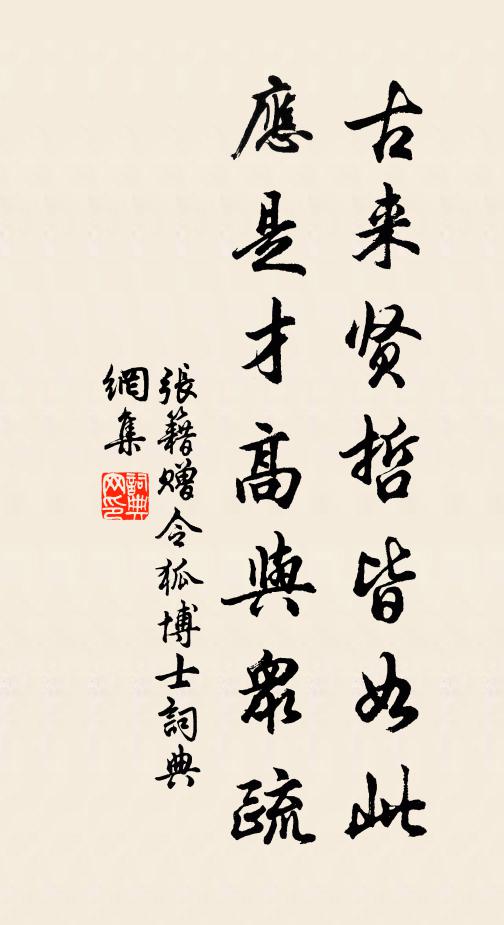 古来贤哲皆如此
應是才高與眾疏
張籍贈令狐博士詞典
網集
詞典
网印